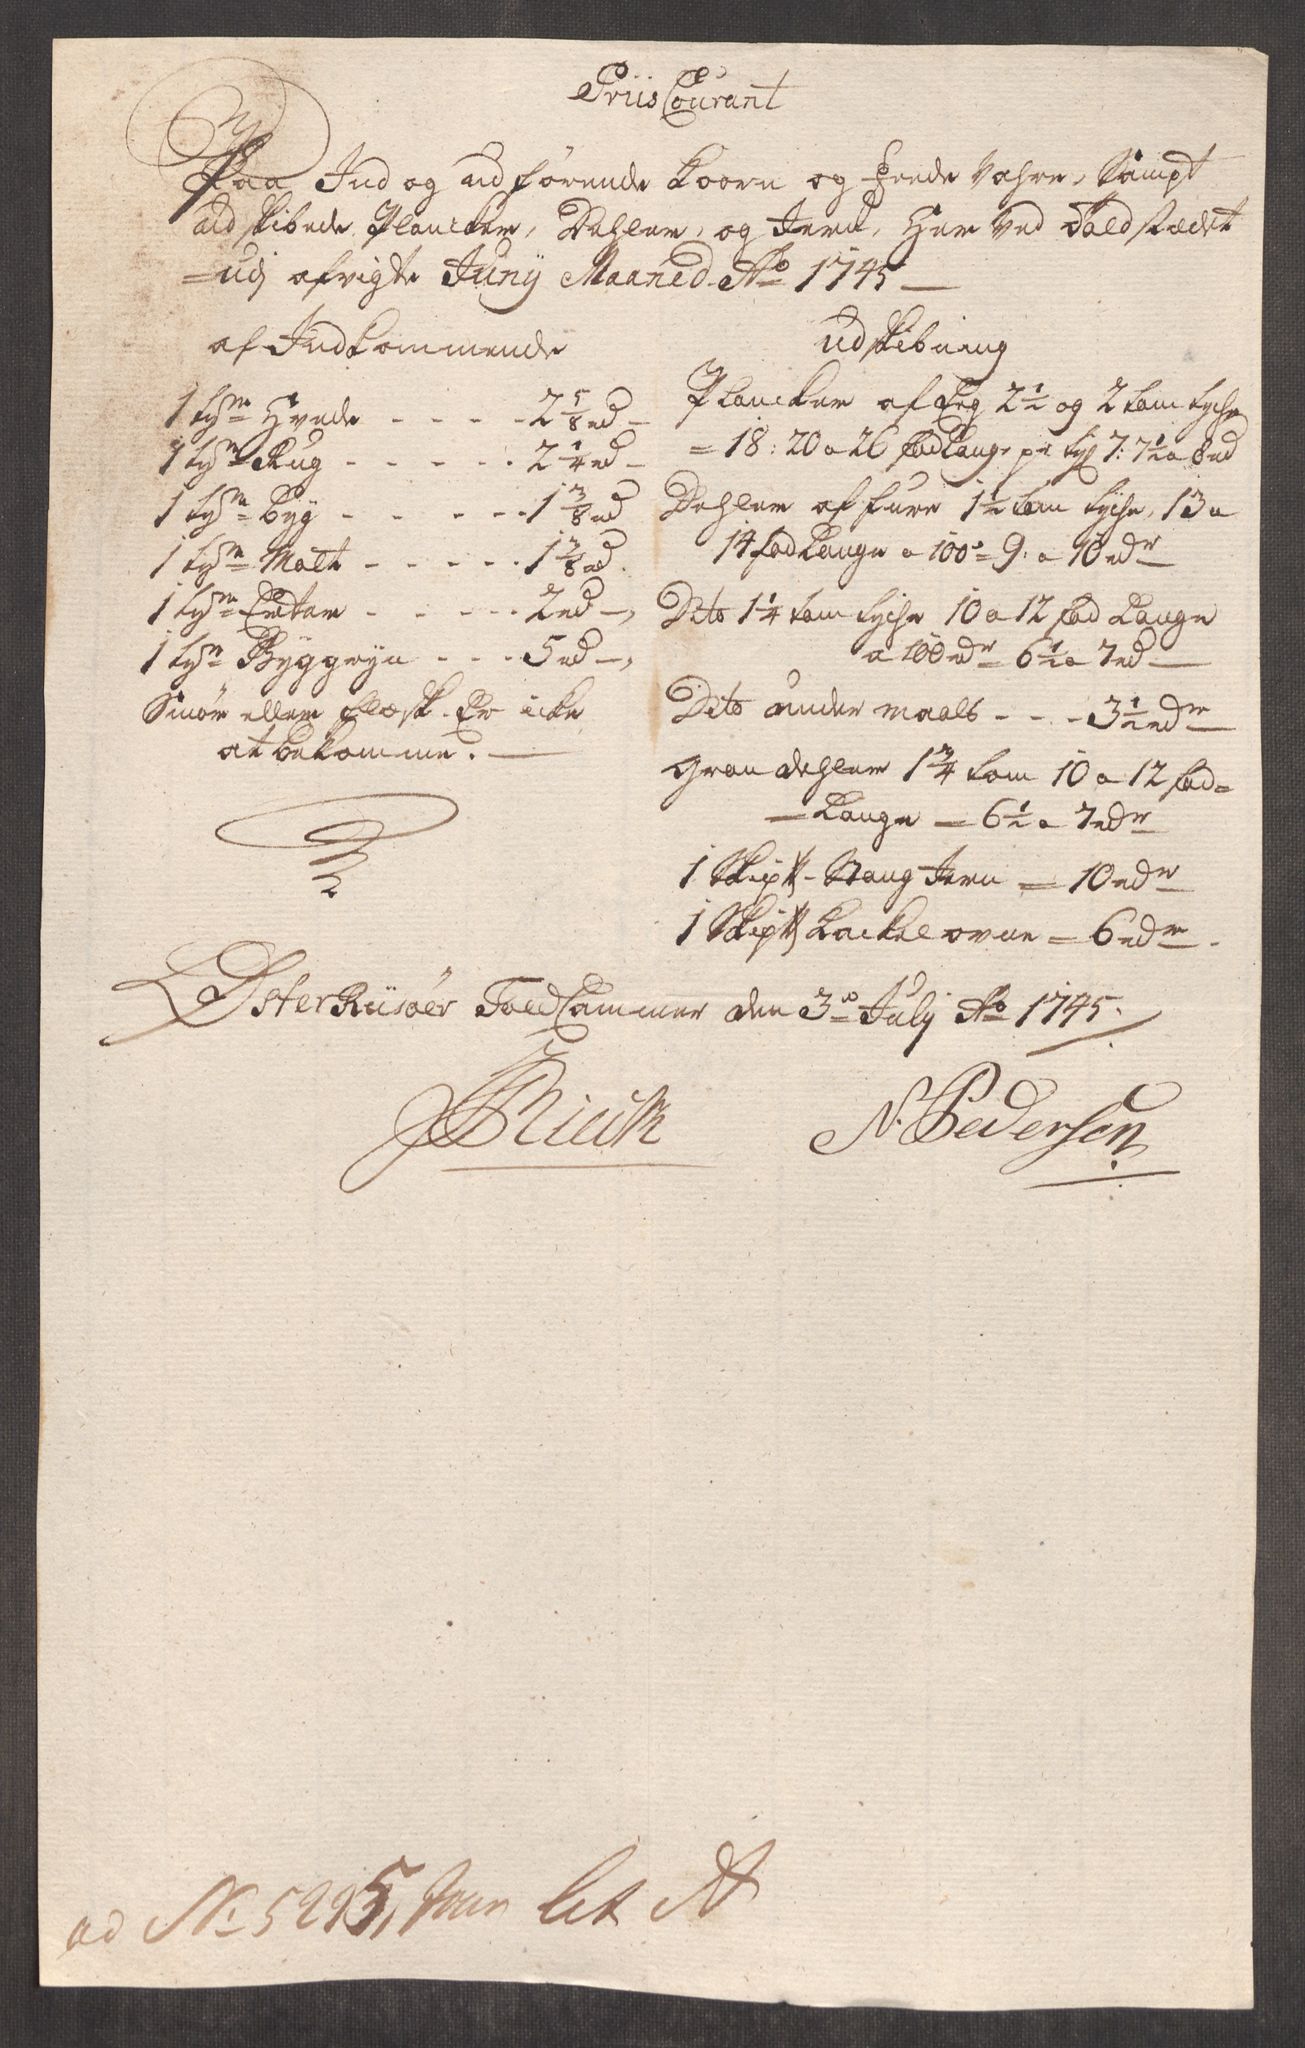 Priis Courant
Paa Ind og udførende Koorn og Feede Vahre, Sampt
udskibede Plancker, Dehler, og Jern, Her ved Toldstædet
udj afvigte Junÿ Maaned Ao 1745
af Indkommende
1 tyne Hvede - - - - 2 5/8 rd
1 tyne Rug - - - - - 2 1/4 rd
1 tyne Byg - - - - - 1 3/8 rd
1 tyne Malt - - - - - 1 3/8 rd
1 tyne Erter - - - - 2 rd
1 tyne Byggryn - - - 5 rd
Smør eller Flæsk Er icke
at bekomme.
udskibning
Plancker af Eeg 2 1/2 og 2 tom tyche
18: 20 a 26 fod Lange pr tyl 7: 7 1/2 a 8 rd
Dehler af furre 1 1/2 tom tyche, 13 a
14 fod Lange a 100de 9. a 10 rdr
Dito 1 1/4 tom tyche 10 a 12 fod Lange
a 100 6 1/2 a 7 rd
Dito under maals - - - 3 1/2 rdr
Gran dehler 1 3/4 tom 10 a 12 fod
Lange 6 1/2 a 7 rdr
1 Skip℔ Stang Jern 10 rdr
1 Skip℔ Kackelovne 6 rdr
ØsterRüsöer Told Cammer den 3de Julÿ Ao 1745.
N. Pedersen
ad No 5295, litr A